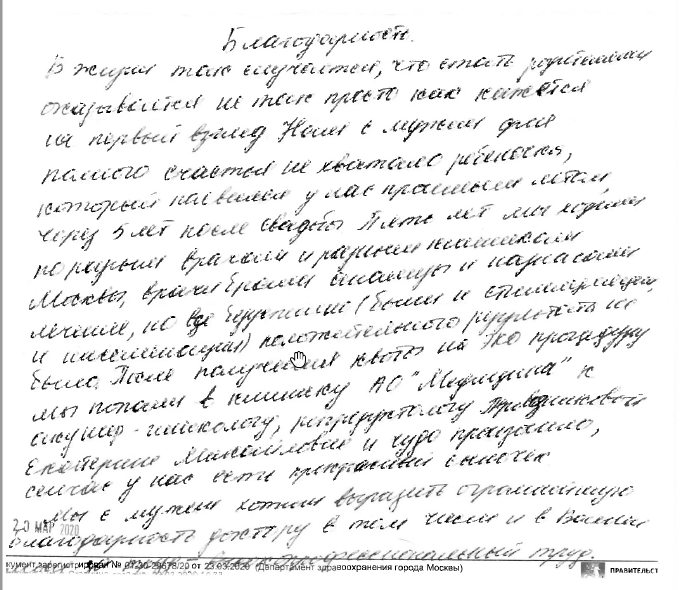 Благодарность.
В жизни так случается, что стать родителями
оказывается не так просто как кажется
на первый взгляд Нам с мужем для
полного счастья не хватало ребеночка,
который появился у нас прошлым летом,
через 5 лет после свадьбы Пять лет мы ходили
по разным врачам и разным клиникам
Москвы, врачи брали анализы и назначали
лечение, но все безуспешно (были и стимуляции,
и инсеминации) положительного результата не
было. После получения квоты на Эко процедуру
мы попали в клинику АО "Медицина" к
акушер-гинекологу, репродуктологу
Екатерине Михайловне и чудо произошло,
сейчас у нас есть прекрасный сыночек
Мы с мужем хотим выразить огромнейшую
23 МАР 2020
Благодарность доктору в том числе и в Вашем
профессиональный труд.
кумент зарегистрирован № от 23.03.2020 (Департамент здравоохранения города Москвы)
ПРАВИТЕЛЬСТ